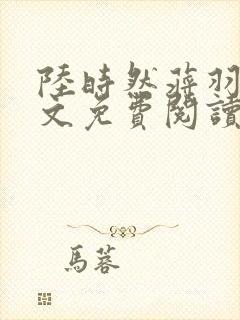 陸時然蔣羽
文免費閱讀
馬蓉